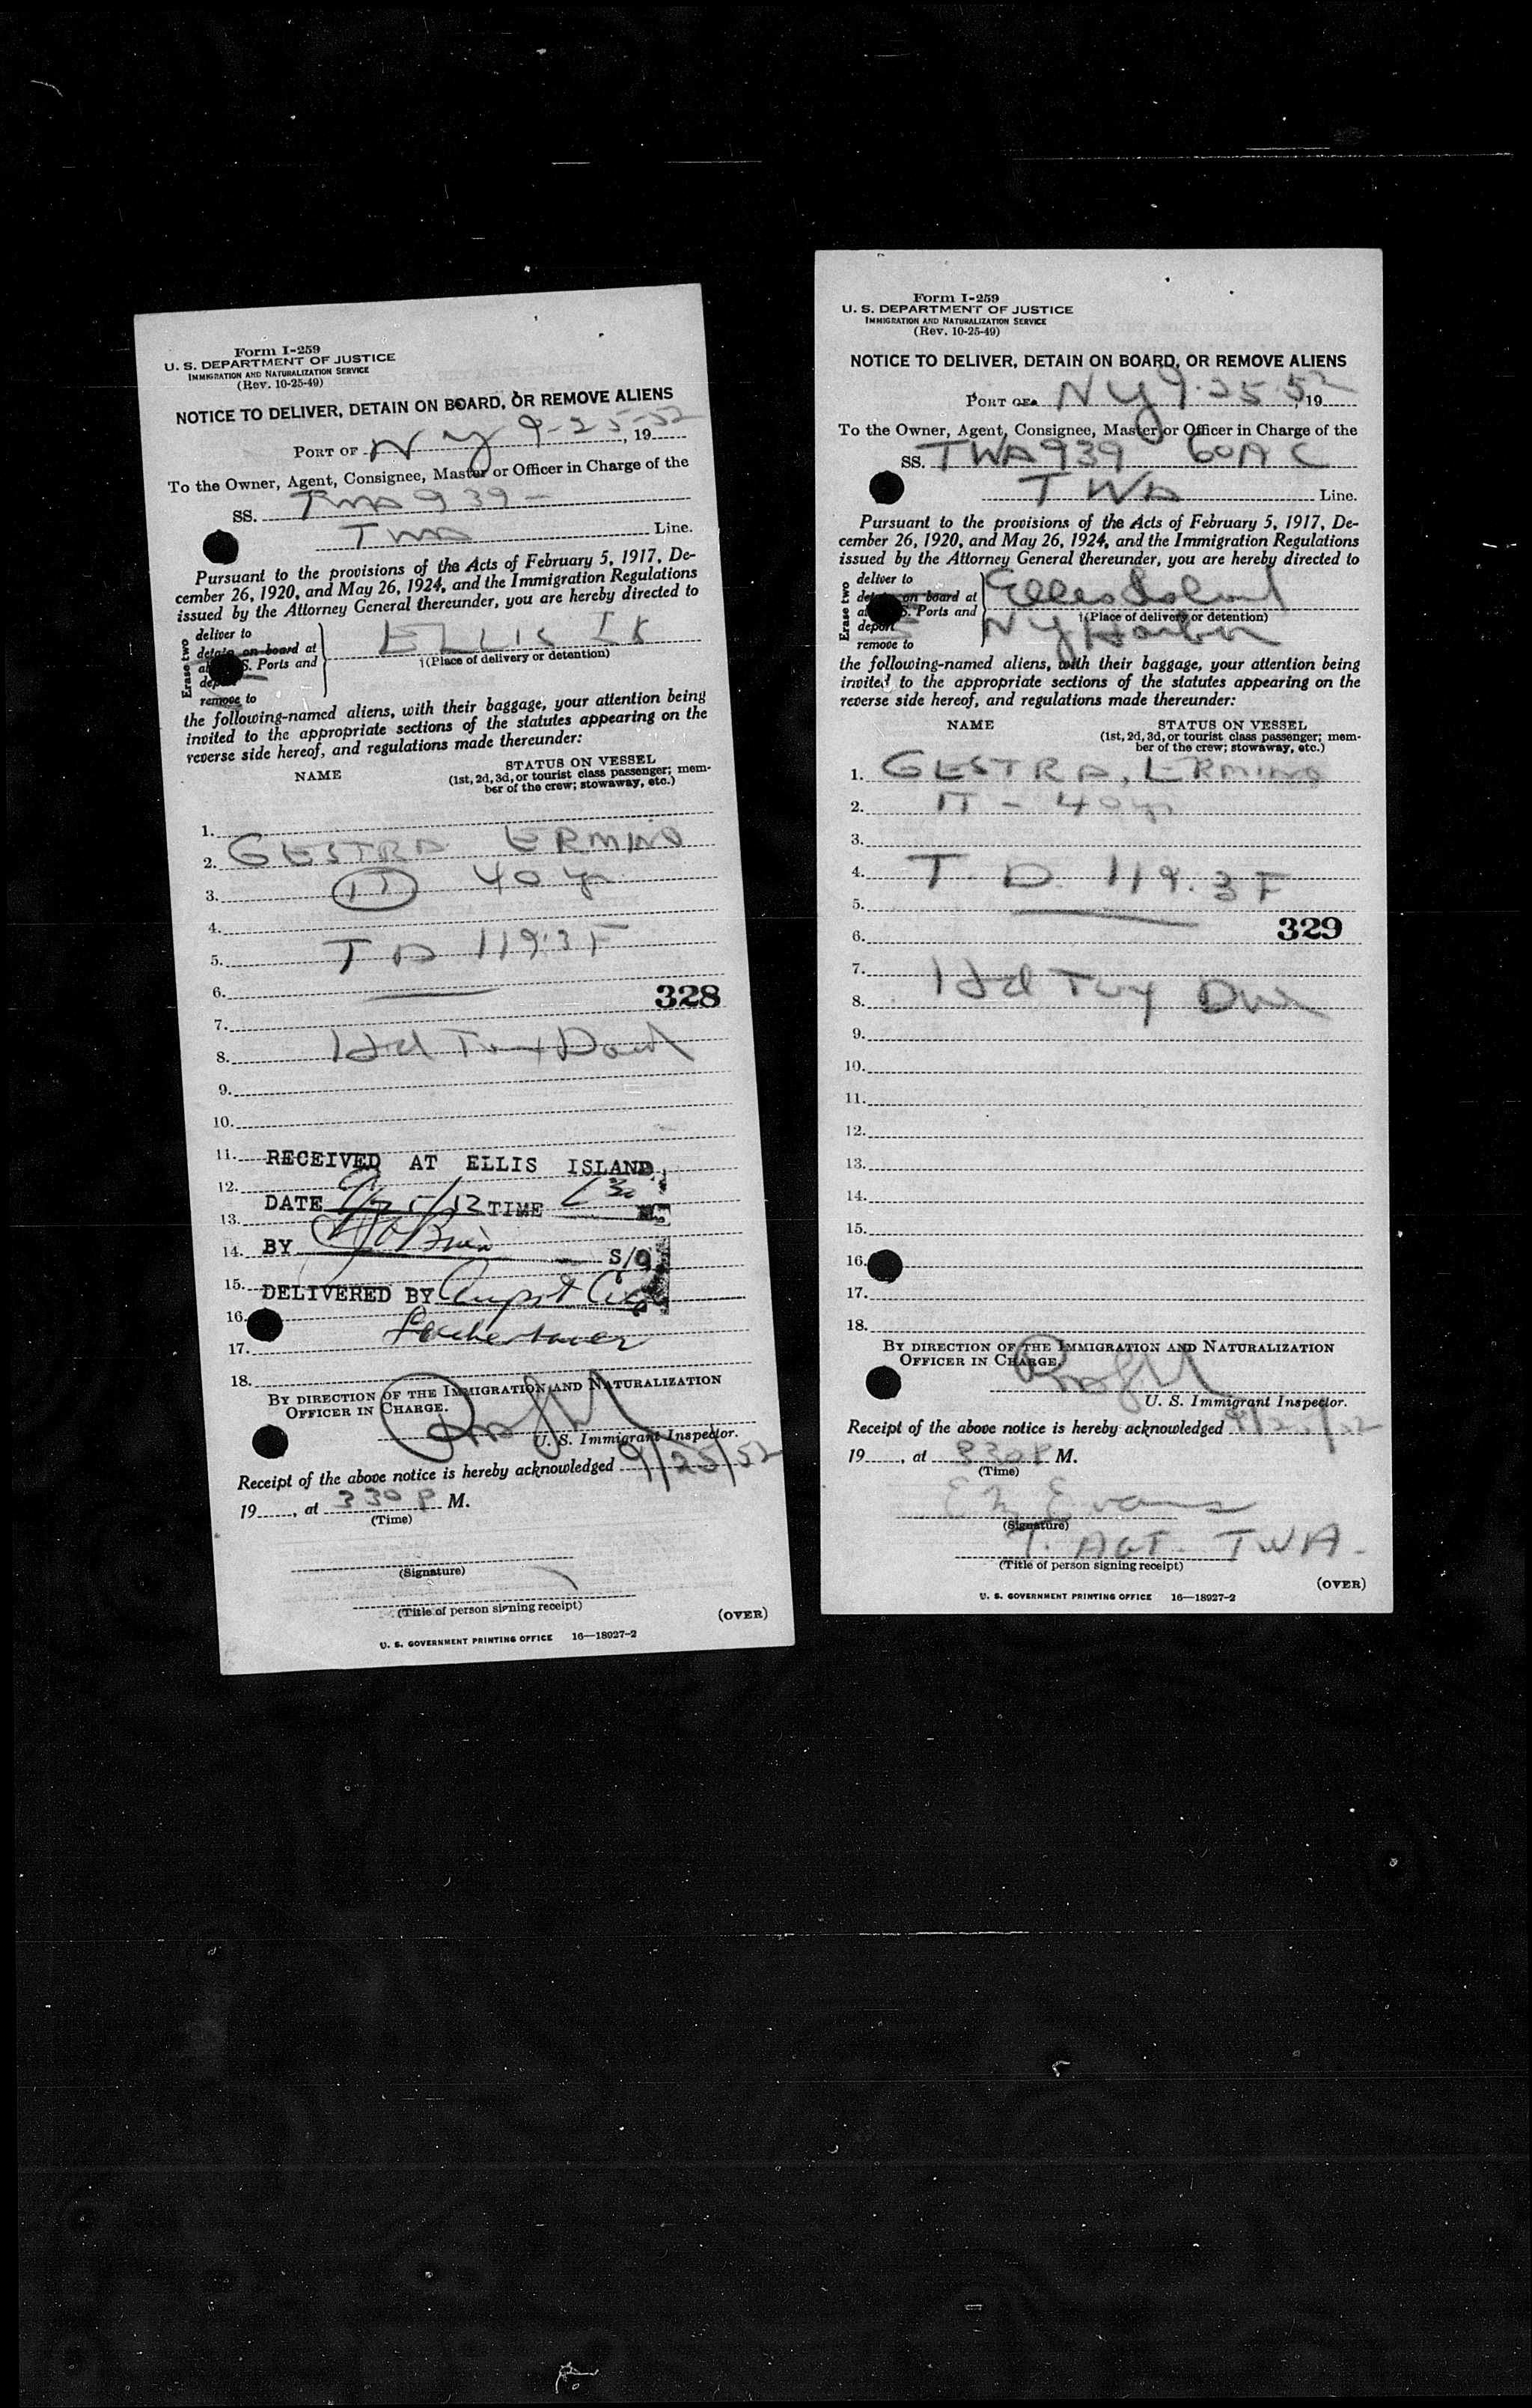 Form I-259
U. S. DEPARTMENT OF JUSTICE
IMMIGRATION AND NATURALIZATION SERVICE
(Rev. 10-25-49)
NOTICE TO DELIVER, DETAIN ON BOARD, OR REMOVE ALIENS
PORT OF NY 9-25-52, 19
To the Owner, Agent, Consignee, Master or Officer in Charge of the
SS. TWA 939 -
TWA Line.
Pursuant to the provisions of the Acts of February 5, 1917, De-
cember 26, 1920, and May 26, 1924, and the Immigration Regulations
issued by the Attorney General thereunder, you are hereby directed to
Erase two
deliver to
detain on board at
S. Ports and
remove to
ELLIS Is
†(Place of delivery or detention)
the following-named aliens, with their baggage, your attention being
invited to the appropriate sections of the statutes appearing on the
reverse side hereof, and regulations made thereunder:
NAME STATUS ON VESSEL
(1st, 2d, 3d, or tourist class passenger; mem-
ber of the crew; stowaway, etc.)
1.
2. GESTRA ERMINO
3. IT 40 yr
4.
5. T D 119.3F
6. 328
7.
8. Hd
9.
10.
11. RECEIVED AT ELLIS ISLAND
12.
DATE 9/25/52 TIME
13.
14. BY O'Brien S/O
15. DELIVERED BY
16.
17.
18.
BY DIRECTION OF THE IMMIGRATION AND NATURALIZATION
OFFICER IN CHARGE.
U. S. Immigrant Inspector.
Receipt of the above notice is hereby acknowledged 9/25/52
19, at 330 P M.
(Time)
(Signature)
(Title of person signing receipt)
(OVER)
U. S. GOVERNMENT PRINTING OFFICE 16—18927-2
Form I-259
U. S. DEPARTMENT OF JUSTICE
IMMIGRATION AND NATURALIZATION SERVICE
(Rev. 10-25-49)
NOTICE TO DELIVER, DETAIN ON BOARD, OR REMOVE ALIENS
PORT OF NY 9-25-52, 19
To the Owner, Agent, Consignee, Master or Officer in Charge of the
SS. TWA 939 60A C
TWA Line.
Pursuant to the provisions of the Acts of February 5, 1917, De-
cember 26, 1920, and May 26, 1924, and the Immigration Regulations
issued by the Attorney General thereunder, you are hereby directed to
Erase two
deliver to
detain on board at
S. Ports and
deport
remove to
Ellis Island
†(Place of delivery or detention)
NY Harbor
the following-named aliens, with their baggage, your attention being
invited to the appropriate sections of the statutes appearing on the
reverse side hereof, and regulations made thereunder:
NAME STATUS ON VESSEL
(1st, 2d, 3d, or tourist class passenger; mem-
ber of the crew; stowaway, etc.)
1. GESTRA, ERMINO
2. IT - 40 yr
3.
4. T. D. 119.3F
5.
6. 329
7.
8. Hd
9.
10.
11.
12.
13.
14.
15.
16.
17.
18.
BY DIRECTION OF THE IMMIGRATION AND NATURALIZATION
OFFICER IN CHARGE.
U. S. Immigrant Inspector.
Receipt of the above notice is hereby acknowledged 9/25/52
19, at 330P M.
(Time)
Evans
(Signature)
T. AGT. TWA.
(Title of person signing receipt)
(OVER)
U. S. GOVERNMENT PRINTING OFFICE 16—18927-2